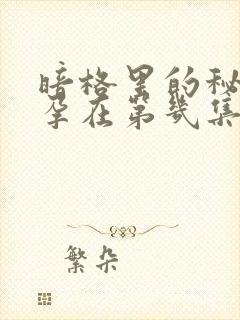 暗格里的秘
孕在第几集
繁朵